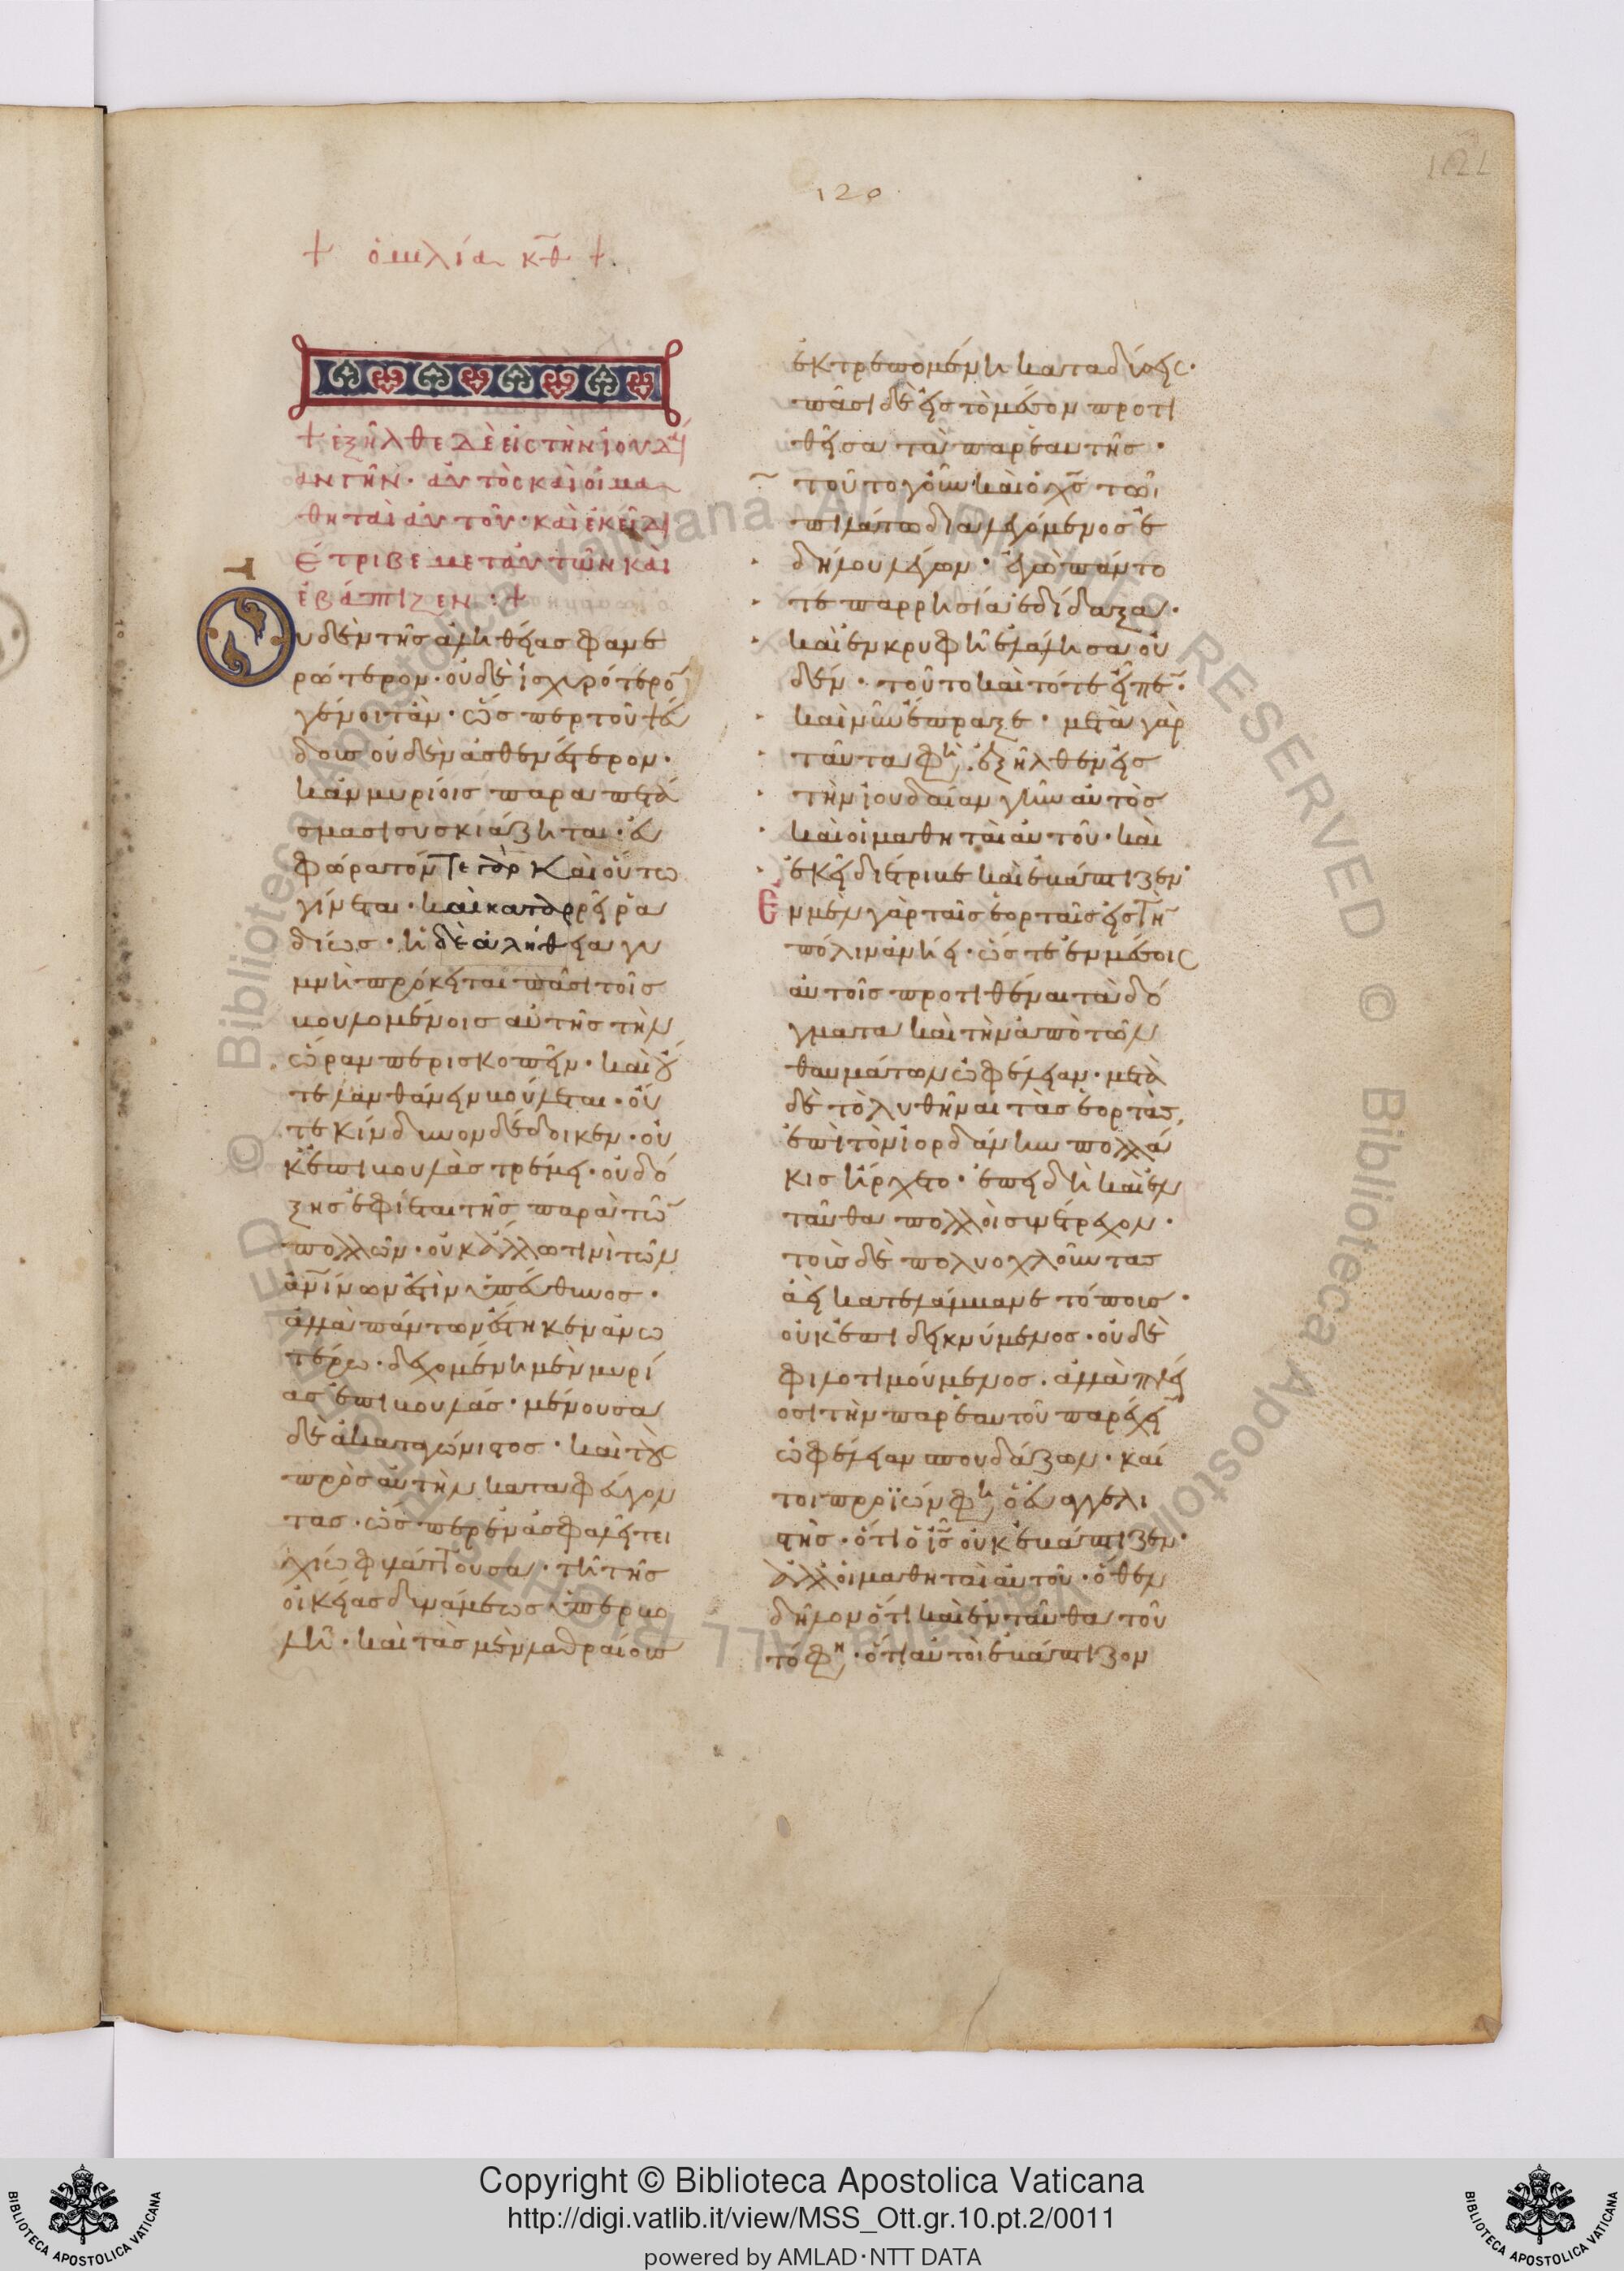 120
+ ὁμιλία κθ +
+ ἐξῆλθε δὲ εἰς τὴν ἰουδαί
αν γῆν· αὐτὸς καὶ οἱ μα
θηταὶ αὐτοῦ· καὶ ἐκεῖ δι
έτριβε μετ' αὐτῶν καὶ
ἐβάπτιζεν :+
Οὐδὲν τῆς ἀληθείας φανε
ρώτερον· οὐδὲ ἰσχυρότερο̅
γένοιτ' ἄν· ὥσπερ τοῦ ψεύ
δους οὐδὲν ἀσθενέστερον·
κἂν μυρίοις παραπετά
σμασι συσκιάζηται· εὐ
φώρατόν τε γὰρ καὶ οὕτω
γίνεται· καὶ καταρρεῖ ῥα
δίως· ἡ δὲ ἀλήθεια γυ
μνὴ πρόκειται πᾶσι τοῖς
βουλομένοις αὐτῆς τὴν
ὥραν περισκοπεῖν· καὶ οὔ
τε λανθάνειν βούλεται· οὔ
τε κίνδυνον δέδοικεν· οὐ
κ ἐπιβουλὰς τρέμει· οὐ δό
ξης ἐφίεται τῆς παρὰ τῶ̅
πολλῶν· οὐκ ἄλλω τινὶ τῶν
ἀν̅ίνων ἐστὶν ὑπεύθυνος·
ἀλλὰ πάντων ἕστηκεν ἀνω
τέρω· δεχομένη μὲν μυρί
ας ἐπιβουλάς· μένουσα
δὲ ἀκαταγώνιστος· καὶ τοὺς
πρὸς αὐτὴν καταφεύγον
τας· ὥσπερ ἐν ἀσφαλεῖ τει
χίω φυλάττουσα· τῆ τῆς
οἰκείας δυνάμεως ὑπερβο
λῆ· καὶ τὰς μὲν λαθραίους
ἐκτρεπομένη καταδύσεις·
πᾶσι δὲ εἰς τὸ μέσον προτι
θεῖσα τὰ παρ' ἑαυτῆς·
τοῦτο γοῦν καὶ ὁ χ̅ς τῶι
πιλάτω διαλεγόμενος ἐ
δήλου λέγων· ἐγὼ πάντο
τε παρρησία ἐδίδαξα·
καὶ ἐν κρυφῆ ἐλάλησα οὐ
δέν· τοῦτο καὶ τότε εἶπε̅·
καὶ νῦν ἔπραξε· μετὰ γὰρ
ταῦτα φη· ἐξῆλθεν εἰς
τὴν ἰουδαίαν γῆν αὐτὸς
καὶ οἱ μαθηταὶ αὐτοῦ· καὶ
ἐκεῖ διέτριβε καὶ ἐβάπτιζεν·
Ἐν μὲν γὰρ ταῖς ἑορταῖς εἰς τὴ̅
πόλιν ἀνήει· ὥστε ἐν μέσοις
αὐτοῖς προτιθέναι τὰ δό
γματα καὶ τὴν ἀπὸ τῶν
θαυμάτων ὠφέλειαν· μετὰ
δὲ τὸ λυθῆναι τὰς ἑορτὰς,
ἐπὶ τὸν ἰορδάνην πολλά
κις ἤρχετο· ἐπειδὴ καὶ ἐν
ταῦθα πολλοὶ συνέτρεχον·
τοὺς δὲ πολυοχλοῦντας
ἀεὶ κατελάμβανε τόπους·
οὐκ ἐπιδεικνύμενος· οὐδὲ
φιλοτιμούμενος· ἀλλὰ πλεί
οσι τὴν παρ' ἑαυτοῦ παρέχει̅
ὠφέλειαν σπουδάζων· καί
τοι προϊών φη ὁ εὐαγγελι
στὴς· ὅτι ὁ ι̅ς οὐκ ἐβάπτιζεν·
ἀλλ' οἱ μαθηταὶ αὐτοῦ· ὅθεν
δῆλον ὅτι καὶ ἐνταῦθα τοῦ
τό φη· ὅτι αὐτοὶ ἐβάπτιζον
Copyright © Biblioteca Apostolica Vaticana
http://digi.vatlib.it/view/MSS_Ott.gr.10.pt.2/0011
powered by AMLAD·NTT DATA
BIBLIOTECA APOSTOLICA VATICANA
BIBLIOTECA APOSTOLICA VATICANA